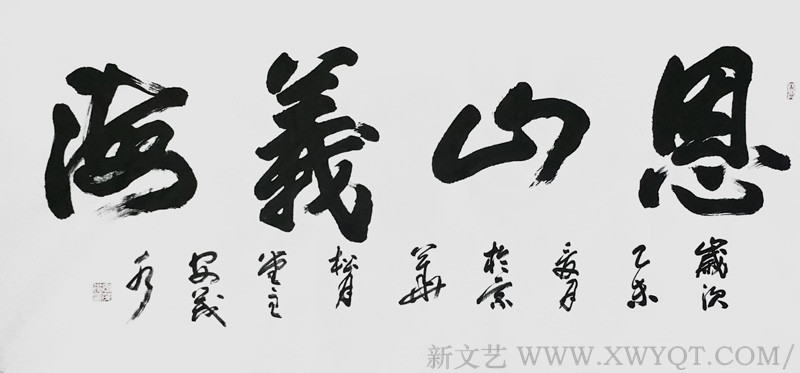 恩山義海
歲次
乙未
夏月
於京
華
松月
堂主
新文艺 WWW.XWYQT.COM/